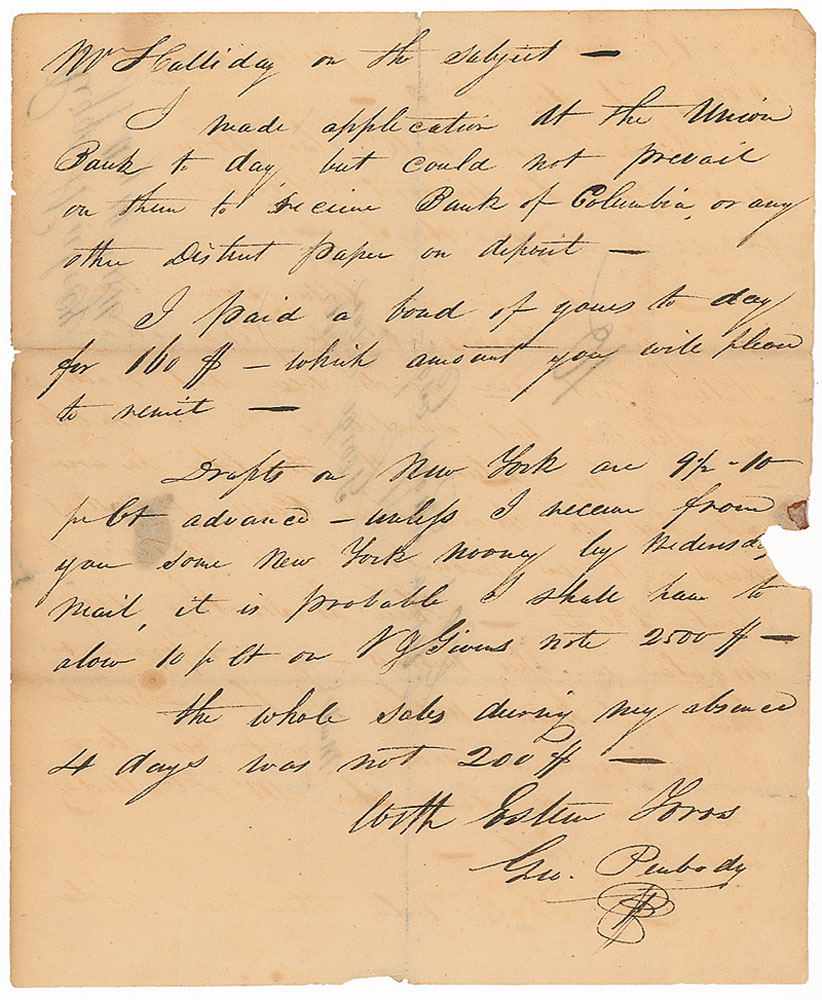 Mr Halliday on the subject —
I made application at the Union
Bank to day, but could not prevail
on them to receive Bank of Columbia, or any
other District paper on deposit —
I paid a bond of yours to day
for 160 $ — which amount you will please
to remit —
Drafts on New York are 9½ - 10
pr Ct advance — unless I receive from
you some New York money by Wedensday
Mail, it is probable I shall have to
alow 10 p Ct on Givens note 2500 $ —
the whole sales during my absence
4 days was not 200 $ —
With Esteem Yours
Geo. Peabody